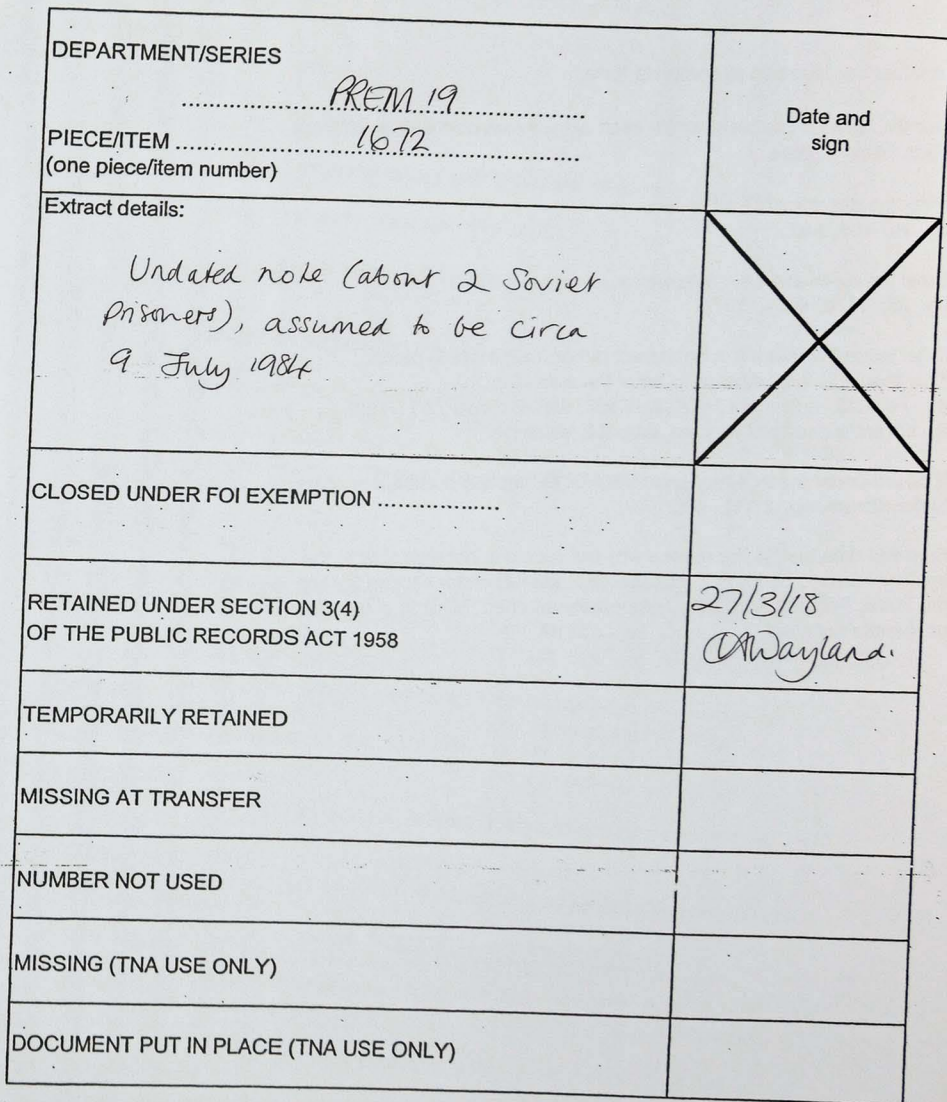 DEPARTMENT/SERIES
....................PREM 19....................
PIECE/ITEM ....................1672....................
(one piece/item number)
Date and
sign
Extract details:
Undated note (about 2 Soviet
Prisoners), assumed to be circa
9 July 1984
CLOSED UNDER FOI EXEMPTION ..................
RETAINED UNDER SECTION 3(4)
OF THE PUBLIC RECORDS ACT 1958
27/3/18
OAWayland.
TEMPORARILY RETAINED
MISSING AT TRANSFER
NUMBER NOT USED
MISSING (TNA USE ONLY)
DOCUMENT PUT IN PLACE (TNA USE ONLY)